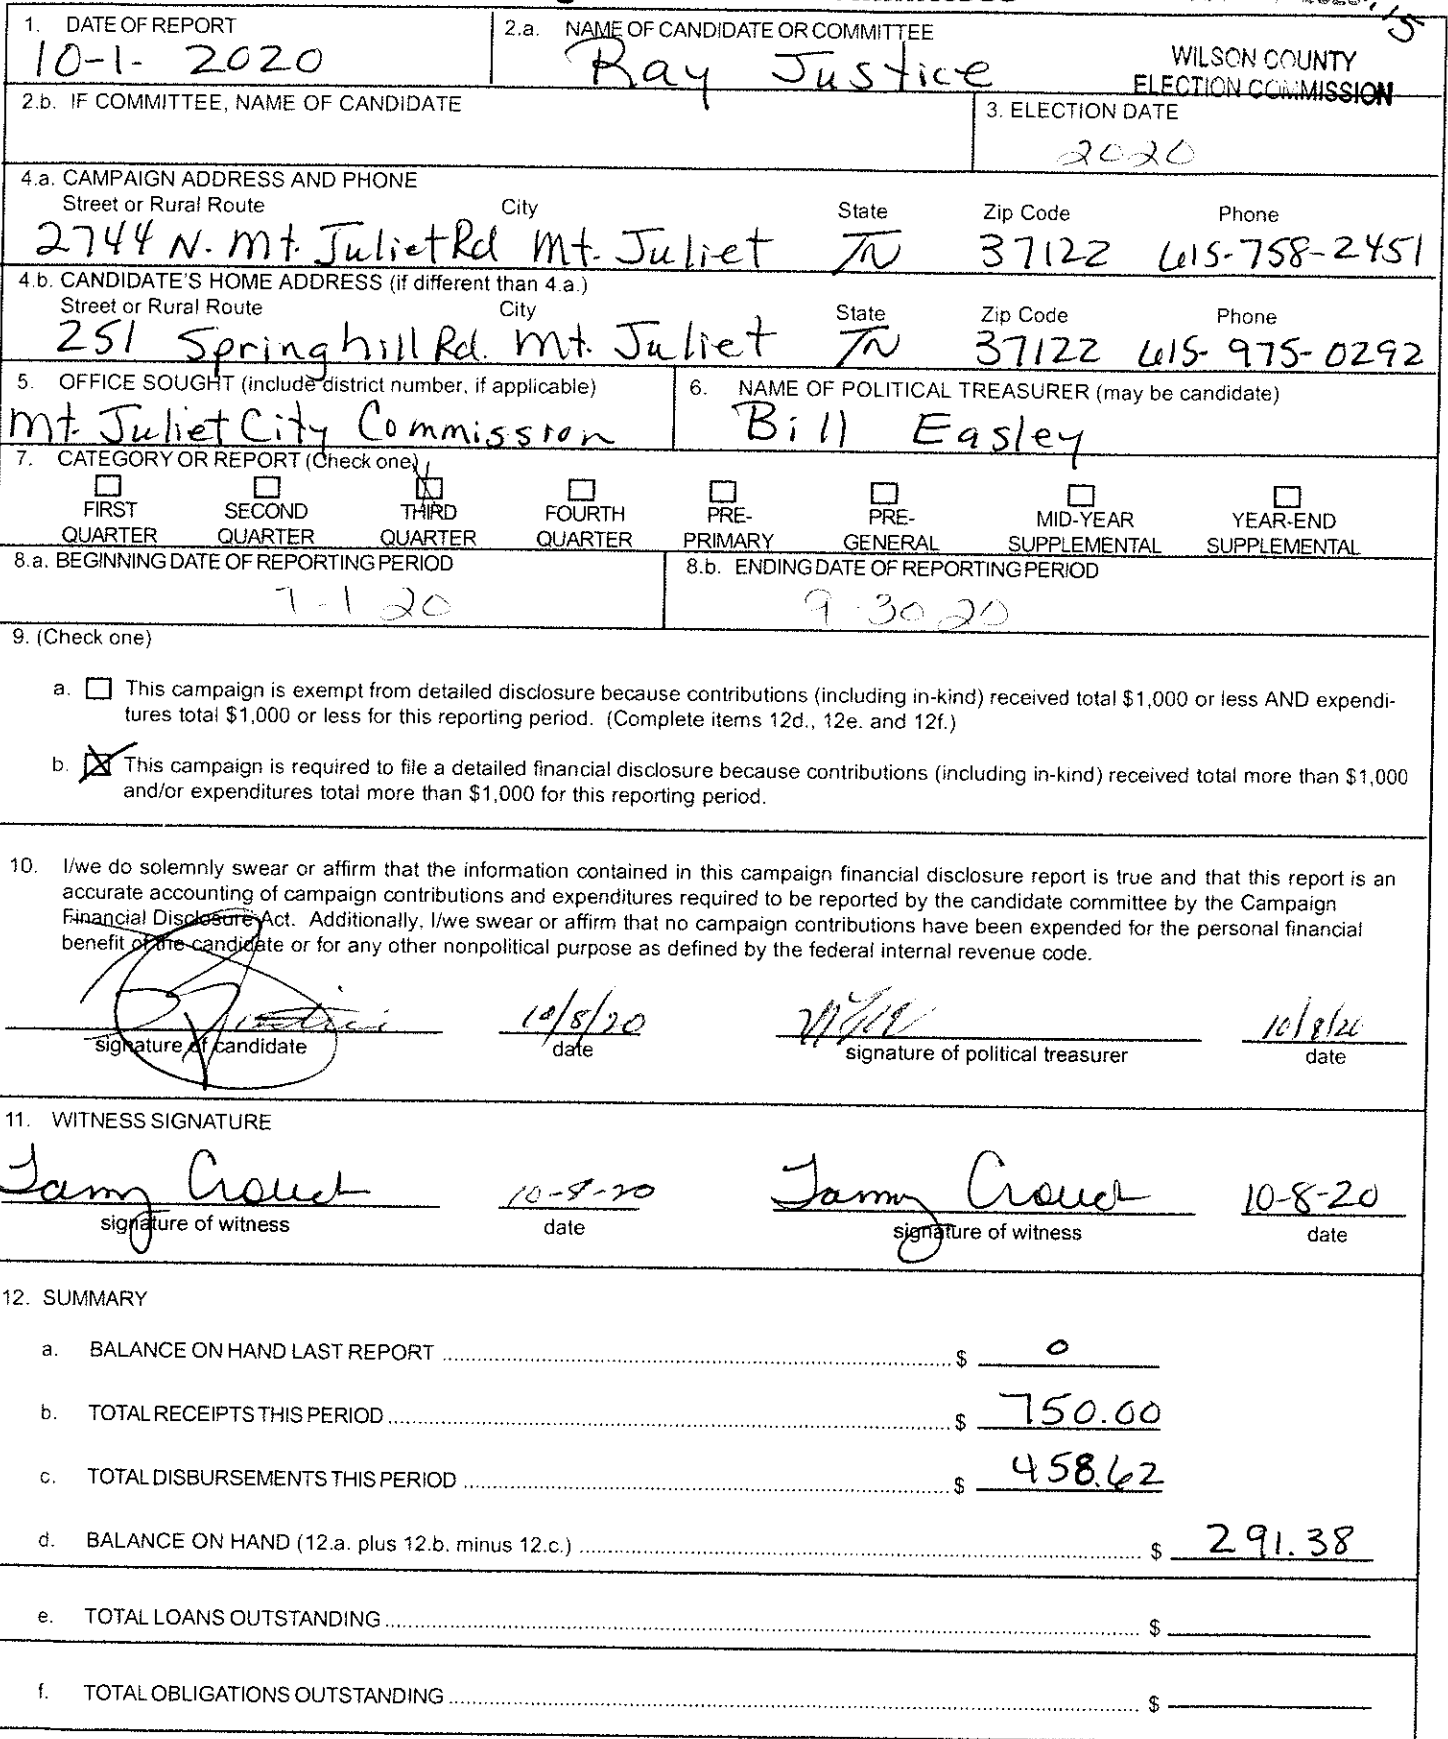 1. DATE OF REPORT
10-1- 2020
2.a. NAME OF CANDIDATE OR COMMITTEE
Ray Justice
15
WILSON COUNTY
ELECTION COMMISSION
2.b. IF COMMITTEE, NAME OF CANDIDATE
3. ELECTION DATE
2020
4.a. CAMPAIGN ADDRESS AND PHONE
Street or Rural Route City State Zip Code Phone
2744 N. Mt. Juliet Rd Mt. Juliet TN 37122 615-758-2451
4.b. CANDIDATE'S HOME ADDRESS (if different than 4.a.)
Street or Rural Route City State Zip Code Phone
251 Springhill Rd. Mt. Juliet TN 37122 615-975-0292
5. OFFICE SOUGHT (include district number, if applicable)
Mt. Juliet City Commission
6. NAME OF POLITICAL TREASURER (may be candidate)
Bill Easley
7. CATEGORY OR REPORT (Check one)
FIRST QUARTER
SECOND QUARTER
THIRD QUARTER
FOURTH QUARTER
PRE-PRIMARY
PRE-GENERAL
MID-YEAR SUPPLEMENTAL
YEAR-END SUPPLEMENTAL
8.a. BEGINNING DATE OF REPORTING PERIOD
7-1 20
8.b. ENDING DATE OF REPORTING PERIOD
9-30 20
9. (Check one)
a. This campaign is exempt from detailed disclosure because contributions (including in-kind) received total $1,000 or less AND expendi-
tures total $1,000 or less for this reporting period. (Complete items 12d., 12e. and 12f.)
b. This campaign is required to file a detailed financial disclosure because contributions (including in-kind) received total more than $1,000
and/or expenditures total more than $1,000 for this reporting period.
10. I/we do solemnly swear or affirm that the information contained in this campaign financial disclosure report is true and that this report is an
accurate accounting of campaign contributions and expenditures required to be reported by the candidate committee by the Campaign
Financial Disclosure Act. Additionally, I/we swear or affirm that no campaign contributions have been expended for the personal financial
benefit of the candidate or for any other nonpolitical purpose as defined by the federal internal revenue code.
10/8/20 10/8/20
signature of candidate date signature of political treasurer date
11. WITNESS SIGNATURE
Tammy Crouch 10-8-20 Tammy Crouch 10-8-20
signature of witness date signature of witness date
12. SUMMARY
a. BALANCE ON HAND LAST REPORT $ 0
b. TOTAL RECEIPTS THIS PERIOD $ 750.00
c. TOTAL DISBURSEMENTS THIS PERIOD $ 458.62
d. BALANCE ON HAND (12.a. plus 12.b. minus 12.c.) $ 291.38
e. TOTAL LOANS OUTSTANDING $
f. TOTAL OBLIGATIONS OUTSTANDING $